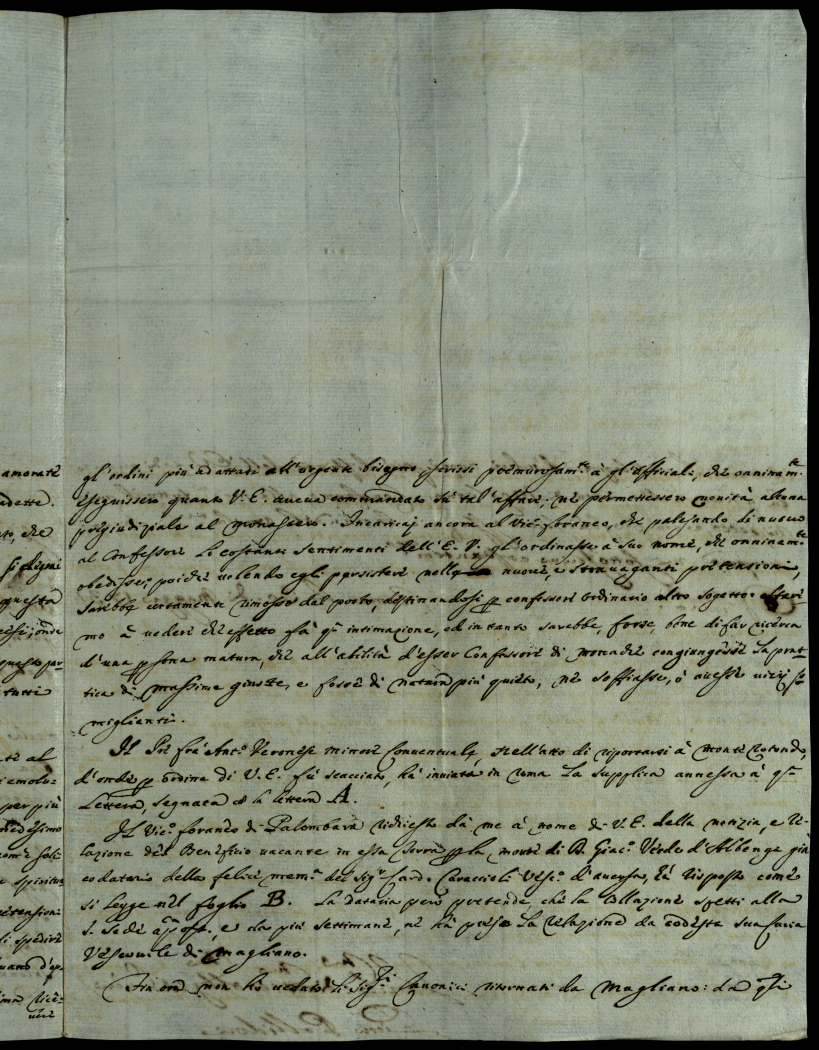 amorate
ndette.
to, che
questa
questo par
tutti
gl'ordini più adattati all'urgente bisogno scrissi premurosam.te à gl'Officiali, che onninam.te
eseguissero quanto V. E. aveva commandato sù tal'affare, nè permettessero novità alcuna
pregiudiziale al Monastero. Incaricaj ancora al Vic.o foraneo, che palesando di nuovo
al Confessore le costanti sentimenti dell'E. V. gl'ordinasse à suo nome, che onninam.te
obedisse; poiche volendo egli persistere nelle nuove, e stravaganti pretensioni,
sarebbe certamente rimosso dal posto, destinandosi p confessore ordinario altro sogetto. Stare-
mo à vedere che effetto fà q.a intimazione, ed in tanto sarebbe, forse, bene di far ricerca
d'una p sona matura, che all'abilità d'esser Confessore di Monache congiungesse la prat-
tica di massime giuste, e fosse di natura più quieto, nè soffiasse, ò avesse vizij so-
miglienti.
Il Pre fra Ant.o Veronese minore Conventuale, nell'atto di riportarsi à Monte rotondo,
d'onde p ordine di V. E. fù scacciato, hà inviata in Roma la supplica annessa à q.a
Lettera, segnata colla lettera A.
Il Vic.o foraneo di Palombara richiesto dà me à nome di V. E. della notizia, e re-
lazione del Beneficio vacante in essa Terra p la morte di D. Giac.o Verde d'Albenga già
codatario della felice mem.a del Sig.r Card. Caraccioli Vesc.o d'Aversa, hà risposto come
si legge nel foglio B. La Dataria però pretende, che la Collazione spetti alla
S. Sede Ap.a, e da più settimane, nè hà preso la relazione da codesta sua Curia
Vescovile di Magliano.
Fin ora non hò veduto li Sig.ri Canonici ritornati da Magliano: da q.sti
te al
per più
medesimo
come soli
spiritu
retensioni
spedire